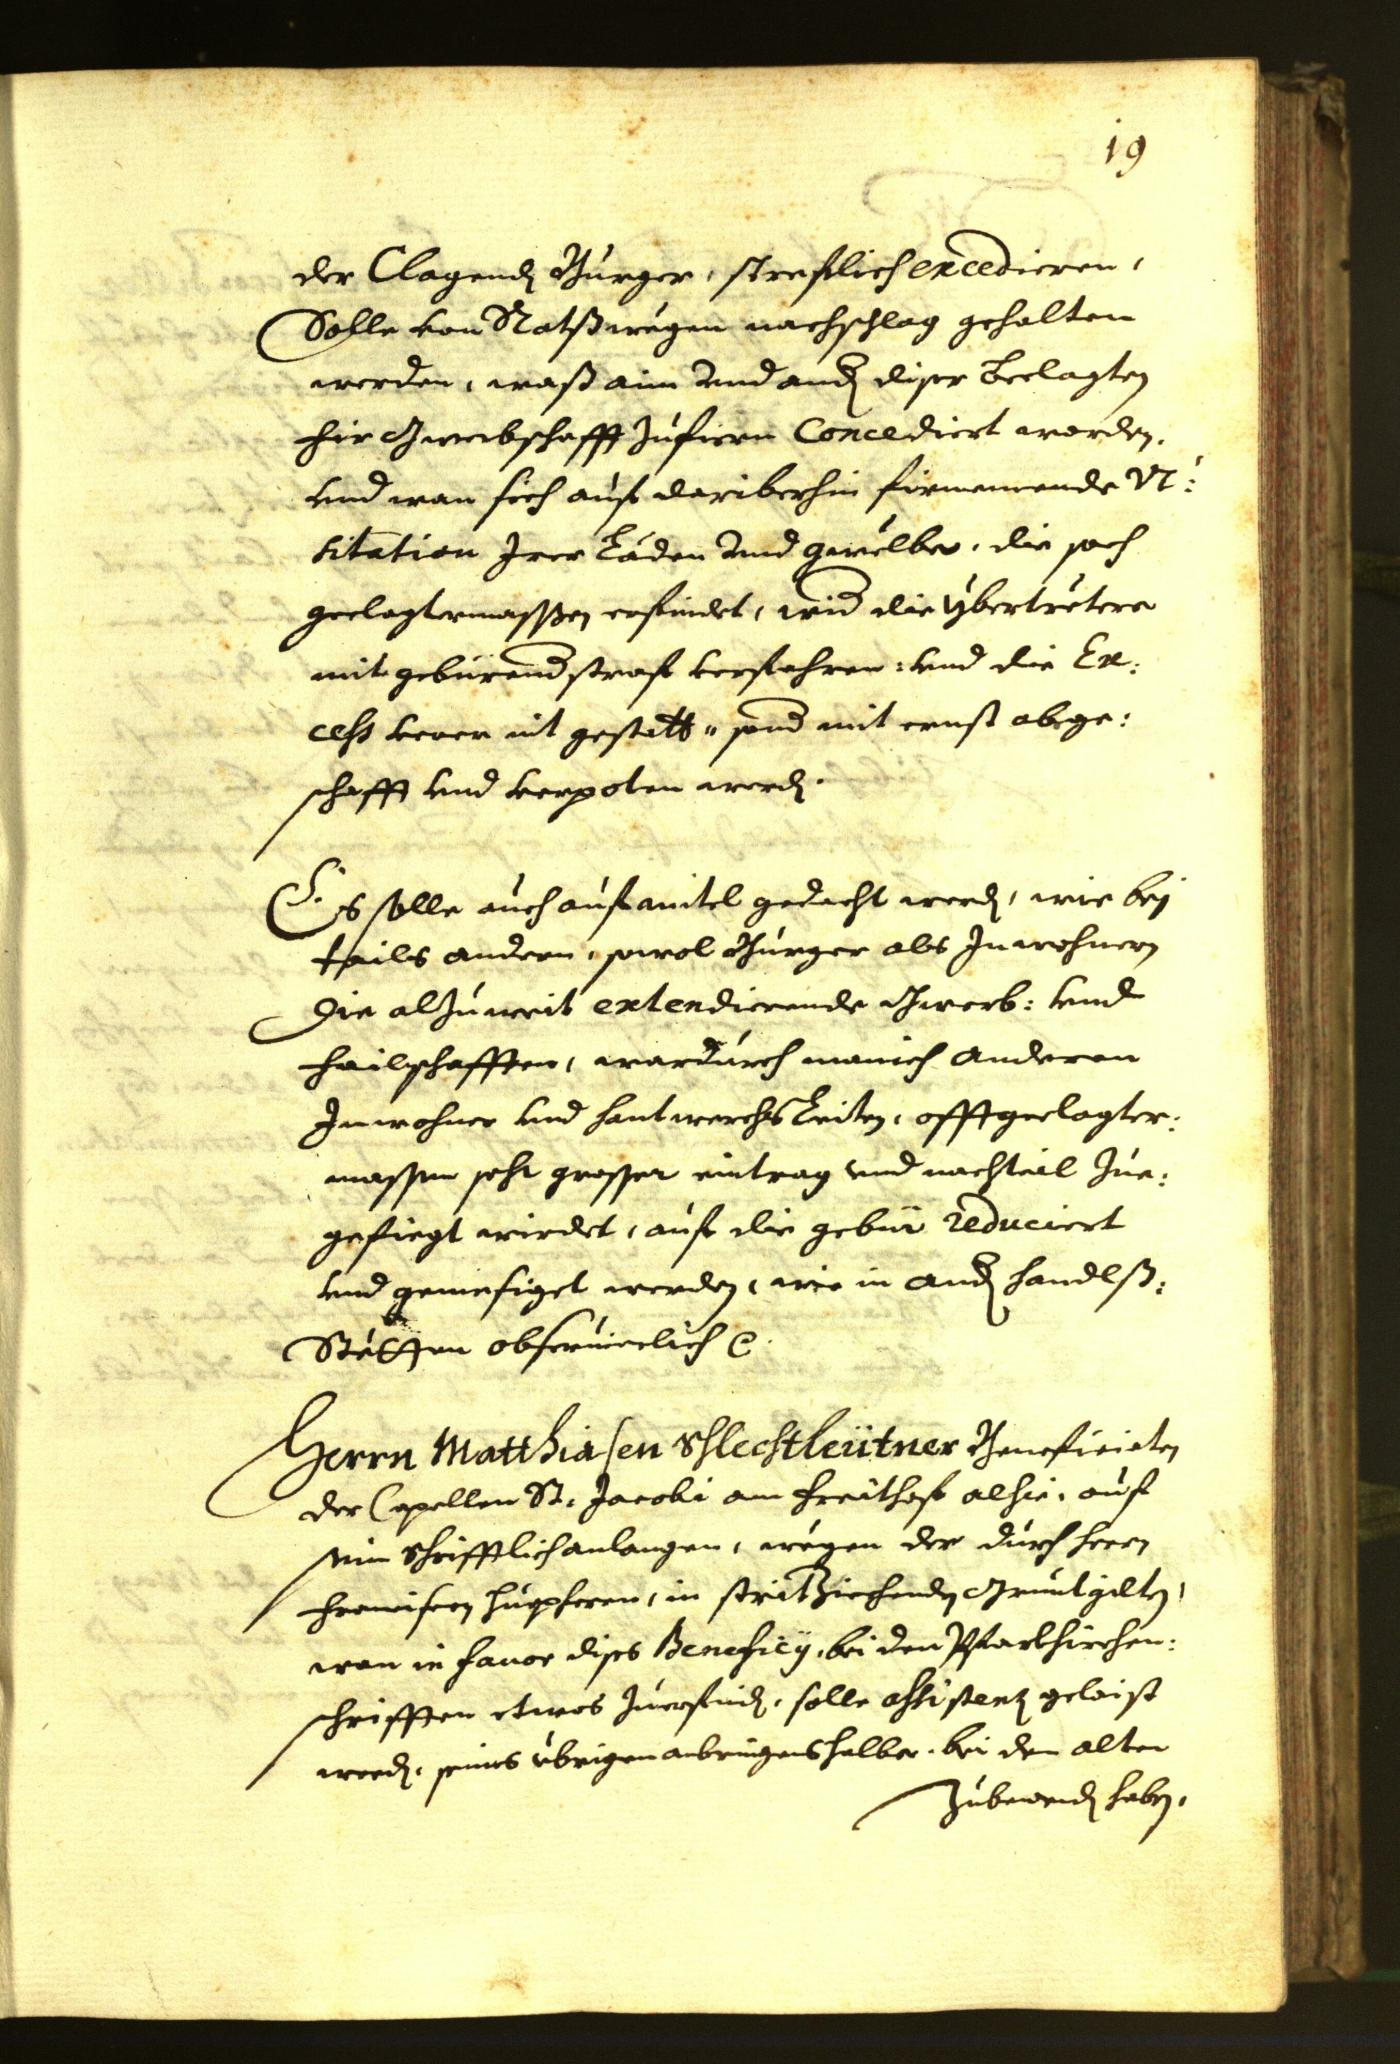 19
der Clagendn Burger, strefflich excedieren,
Solle von Ratß wegen nachschlag gehalten
werden, waß aim und andn diser beclagten
für Gwerbschafft zufiern Concediert worden,
und wan sich auf dariberhin firnemende Vi:
sitation Irer Läden und gwelber, die sach
geclagtermassen erfindet, wid die ybertretere
mit gebürend straff verfahren: und die Ex:
cess verer nit gestatt, sond mit ernst abge:
schafft und verpoten werdn.
Es solle auch auf mitel gedacht werdn, wie bey
thails andern, sowol Burger als Inwohnern
die alzuweit extendierende Gwerb: und
failschafften, wardurch manich anderen
Inwohner und hantwerchs Leiten, offtgeclagter:
massen sehr grosser eintrag und nachteil zue:
gefiegt wirdet, auf die gebür reduciert
und gemesiget werden, wie in andn handlß:
Stetten observierlich etc.
Herrn Matthiasen Schlechtleütner Beneficiaten
der Capellen St: Jacobi am freithof alhie, auf
sein schrifftlich anlangen, wegen der durch herrn
Francisen hüpheren, in strit ziehenden Gruntgilten,
wan in favor dises Beneficy, bei den Pfarkhirchen:
schrifften etwas zuerfindn, solle assistenz gelaist
werdn, seines übrigen anbringens halber, bei dem alten
zubewendn haben.